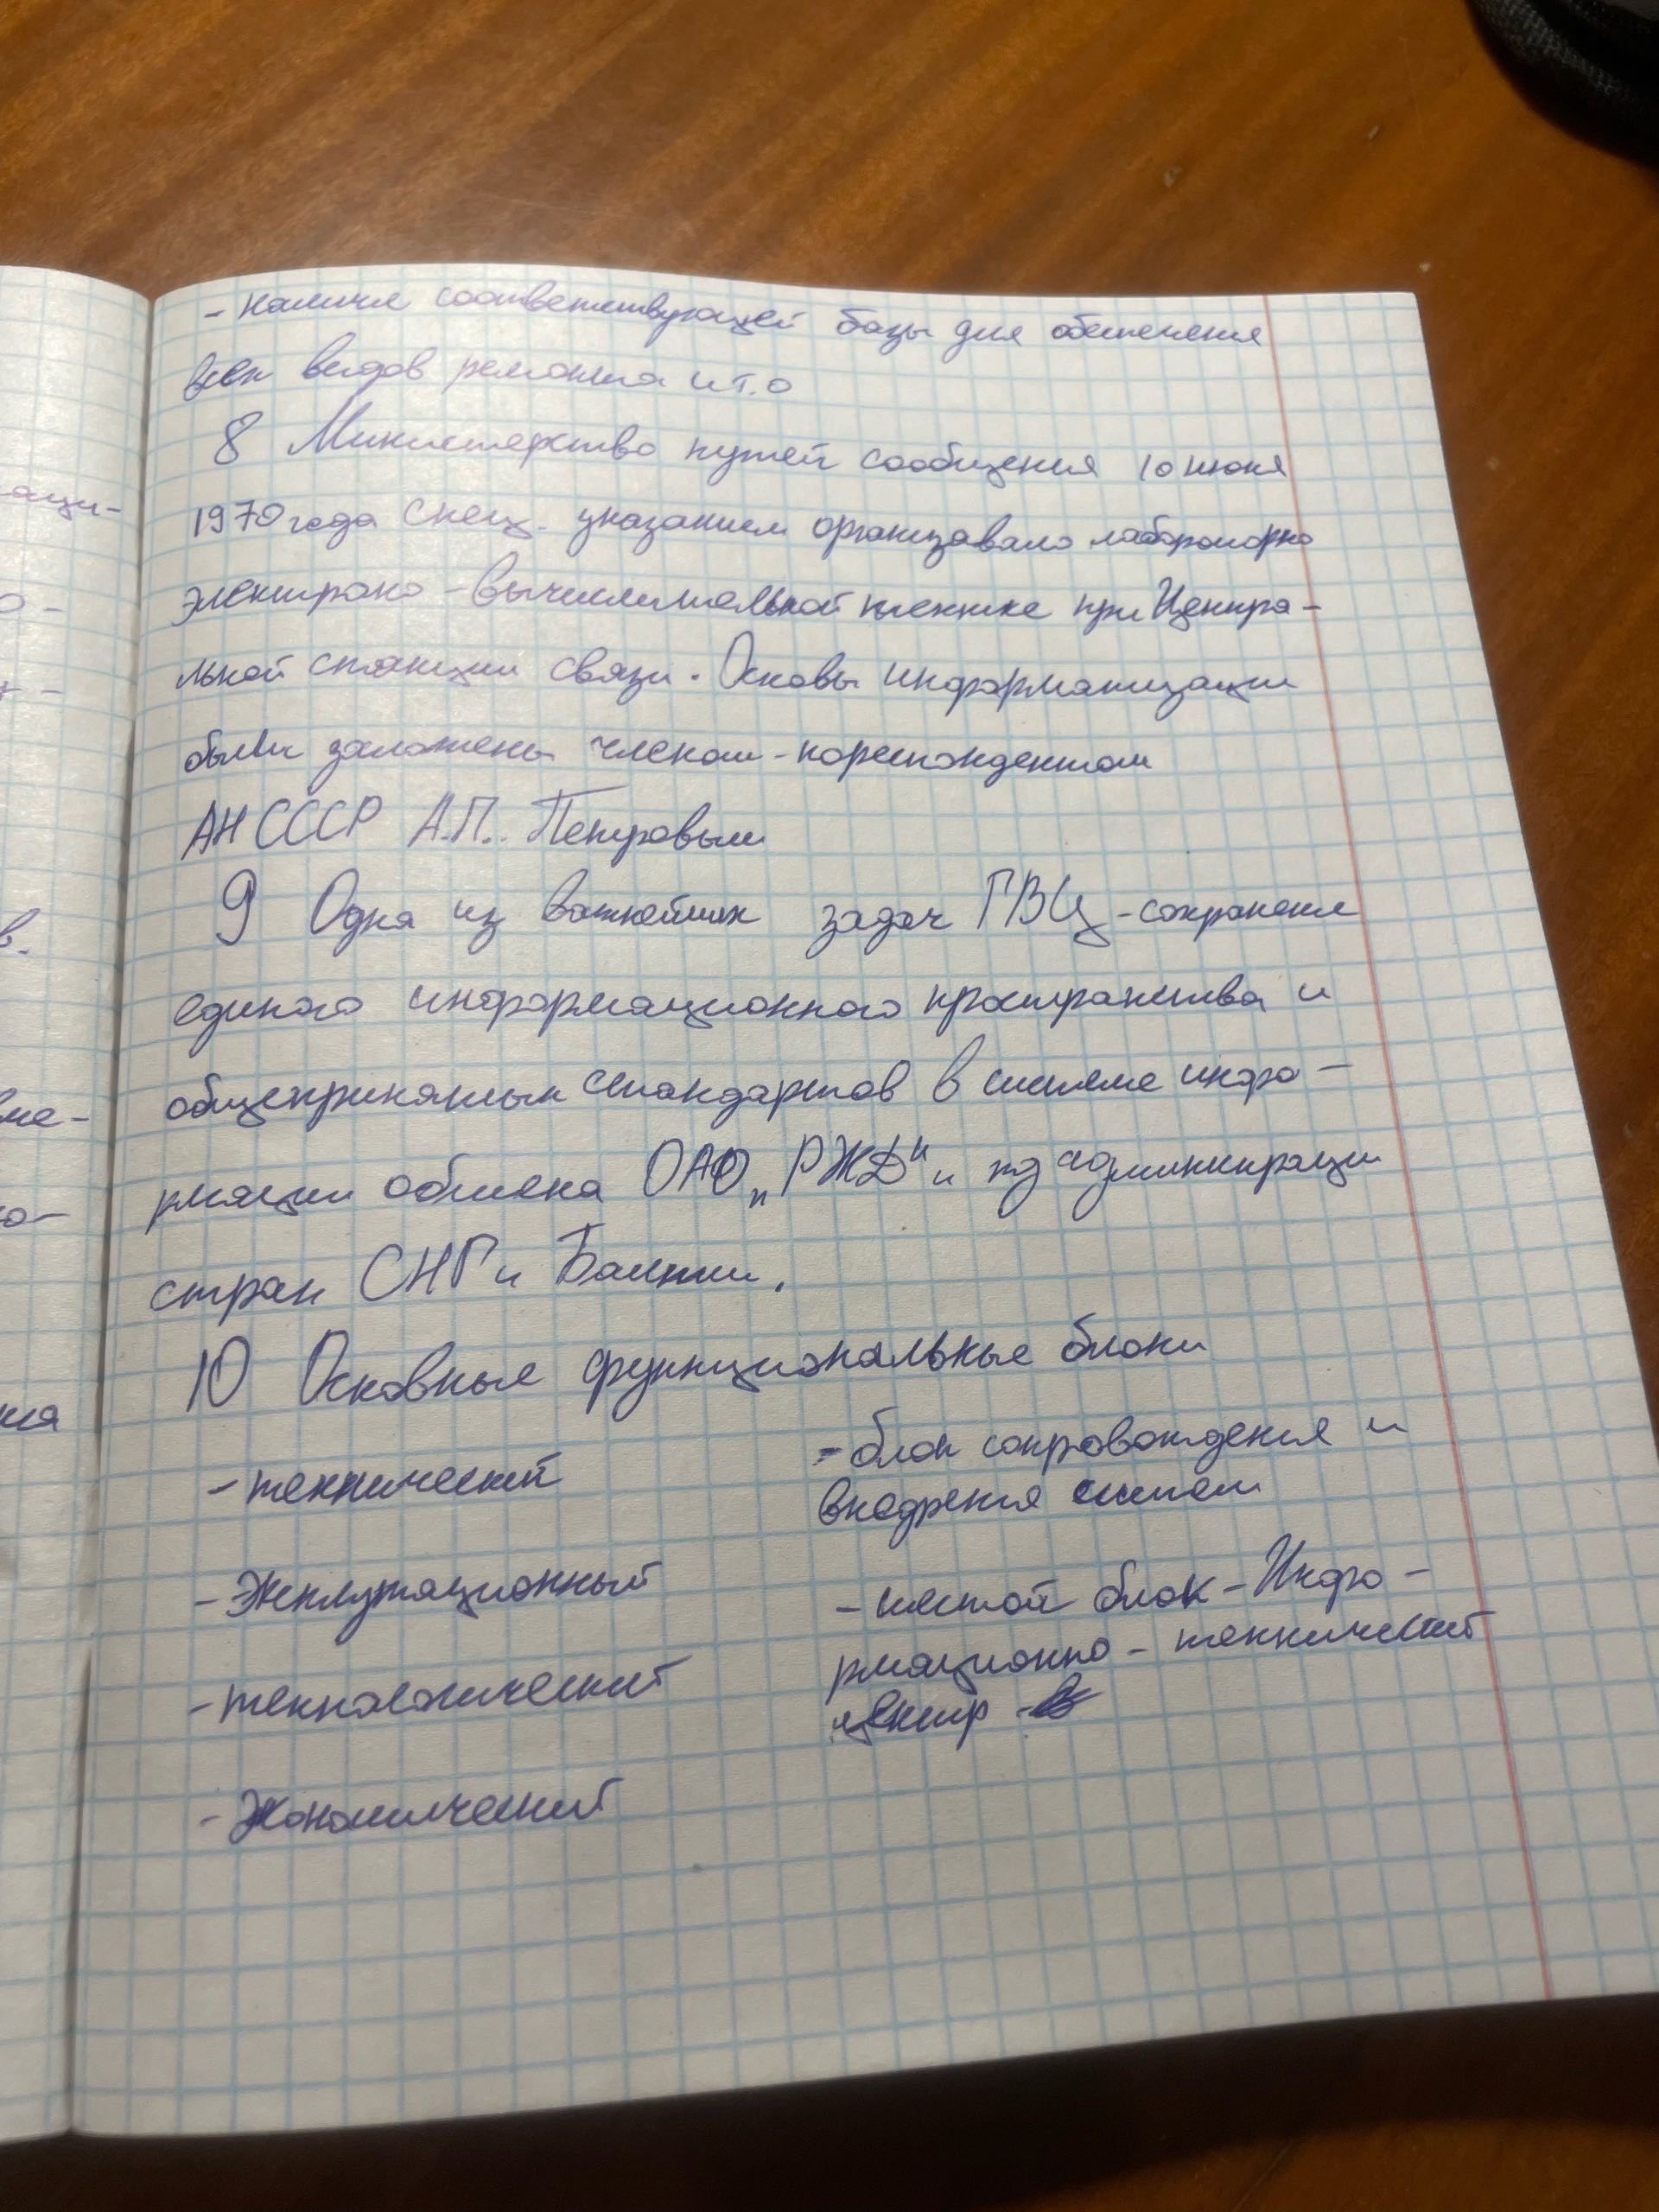 - наличие соответствующей базы для обеспечения
всех видов ремонта и т.о
8 Министерство путей сообщения 10 июня
1970 года спец. указанием организавало лабораторию
электроно - вычислительной технике при Центра-
льной станции связи. Основы информатизации
были заложены членом - кореспондентом
АН СССР А.П. Петровым
9 Одна из важнейших задач ГВЦ - сохранение
единого информационного пространства и
общепринятых стандартов в системе инфо-
рмации обмена ОАО „РЖД" и жд администраци
стран СНГ и Балтии.
10 Основные функциональные блоки
- технический
- Эксплутационный
- технологический
- Экономический
- блок сопровождения и
внедрения систем
- шестой блок - Инфо-
рмационно - технический
центр -
аци-
о-
в.
ме-
о-
ия